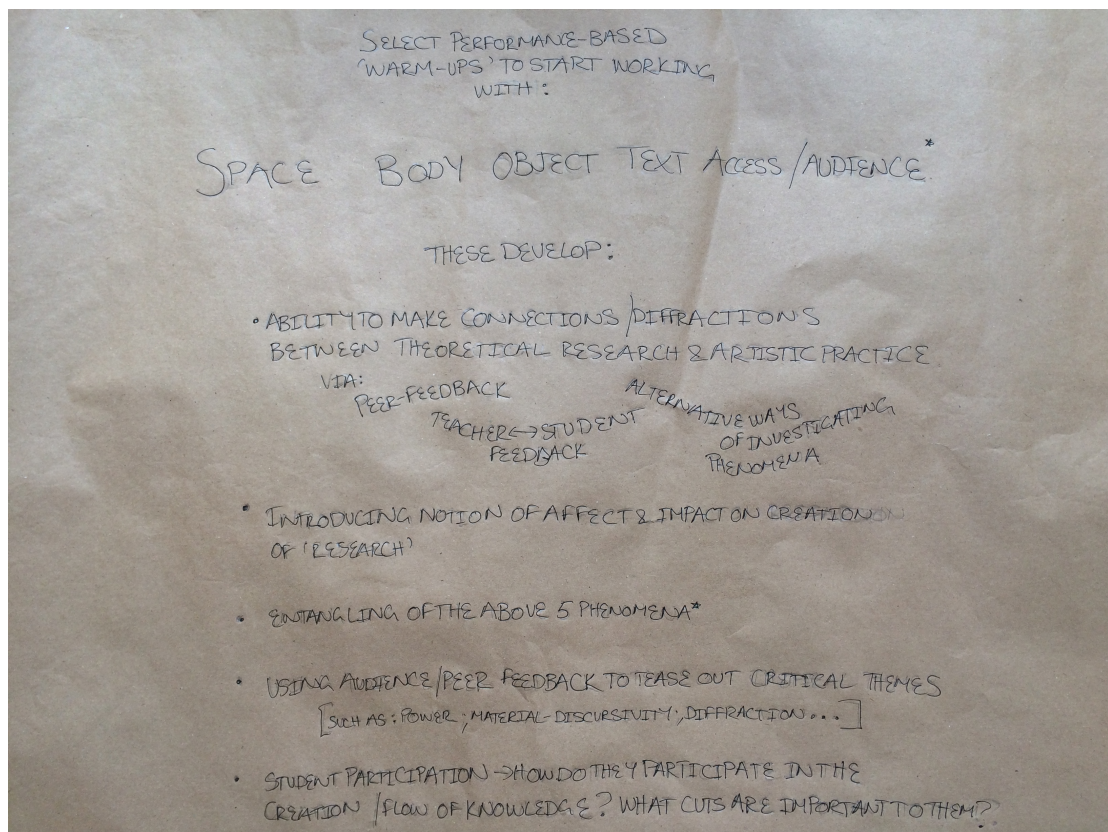 SELECT PERFORMANCE-BASED
'WARM-UPS' TO START WORKING
WITH:
SPACE BODY OBJECT TEXT ACCESS/AUDIENCE*
THESE DEVELOP:
• ABILITY TO MAKE CONNECTIONS/DIFFRACTIONS
BETWEEN THEORETICAL RESEARCH & ARTISTIC PRACTICE
VIA:
PEER-FEEDBACK
TEACHER↔STUDENT
FEEDBACK
ALTERNATIVE WAYS
OF INVESTIGATING
PHENOMENA
• INTRODUCING NOTION OF AFFECT & IMPACT ON CREATION
OF 'RESEARCH'
• ENTANGLING OF THE ABOVE 5 PHENOMENA*
• USING AUDIENCE/PEER FEEDBACK TO TEASE OUT CRITICAL THEMES
[SUCH AS: POWER; MATERIAL-DISCURSIVITY; DIFFRACTION...]
• STUDENT PARTICIPATION → HOW DO THEY PARTICIPATE IN THE
CREATION /FLOW OF KNOWLEDGE? WHAT CUTS ARE IMPORTANT TO THEM?